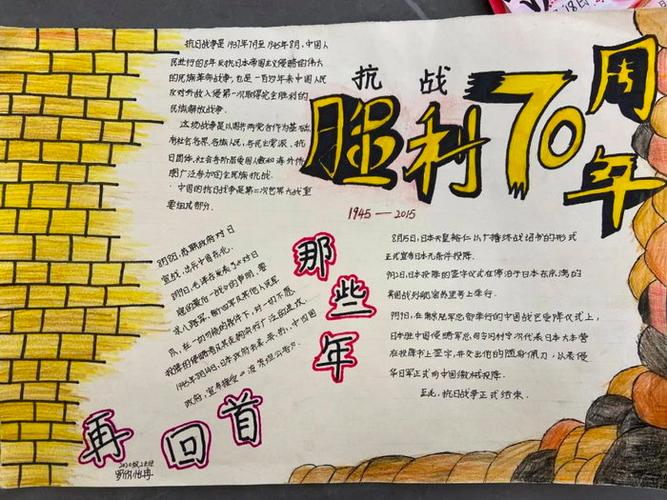 抗战
胜利70周年
1945—2015
抗日战争是1937年7月至1945年8月,中国人
民进行的8年反抗日本帝国主义侵略的伟大
的民族革命战争,也是一百多年来中国人民
反对外敌入侵第一次取得完全胜利的
民族解放战争。
这场战争是以国共两党合作为基础,
有社会各界、各族人民、各民主党派、抗
日团体、社会各阶层爱国人数和海外侨
胞广泛参加的全民族抗战。
中国的抗日战争是第二次世界大战重
要组成部分。
那些年
8月8日,苏联政府对日
宣战,出兵中国东北。
8月9日,毛泽东发表了《对日
寇的最后一战》的声明,要
求八路军、新四军及其他人民军
队,在一切可能的条件下,对一切不愿
投降的侵略者及其走狗实行广泛的进攻。
1945年8月14日,日本政府照会美、英、苏、中四国
政府,宣布接受《波茨坦公告》。
8月15日,日本天皇裕仁以广播终战诏书的形式
正式宣布日本无条件投降。
9月2日,日本投降的签字仪式在停泊于日本东京湾的
美国战列舰密苏里号上举行。
9月9日,在南京陆军总部举行的中国战区受降仪式上,
日本驻中国侵略军总司令冈村宁次代表日本大本营
在投降书上签字,并交出他的随身佩刀,以表侵
华日军正式向中国缴械投降。
至此,抗日战争正式结束。
再回首